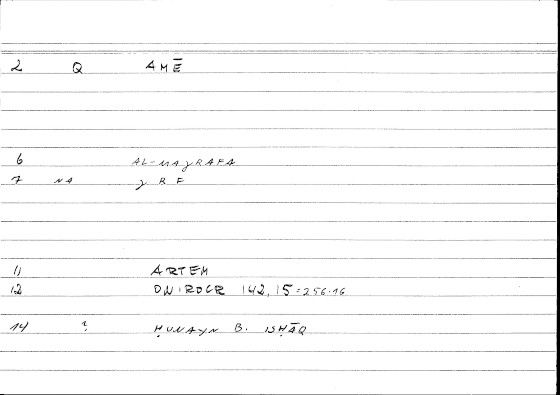 2 Q AMĒ
6 AL-MAʿRAFA
7 NA ʿ R F
11 ARTEM
12 DN:ROCR 142,15=256.16
14 ? ḤUNAYN B. ISḤĀQ